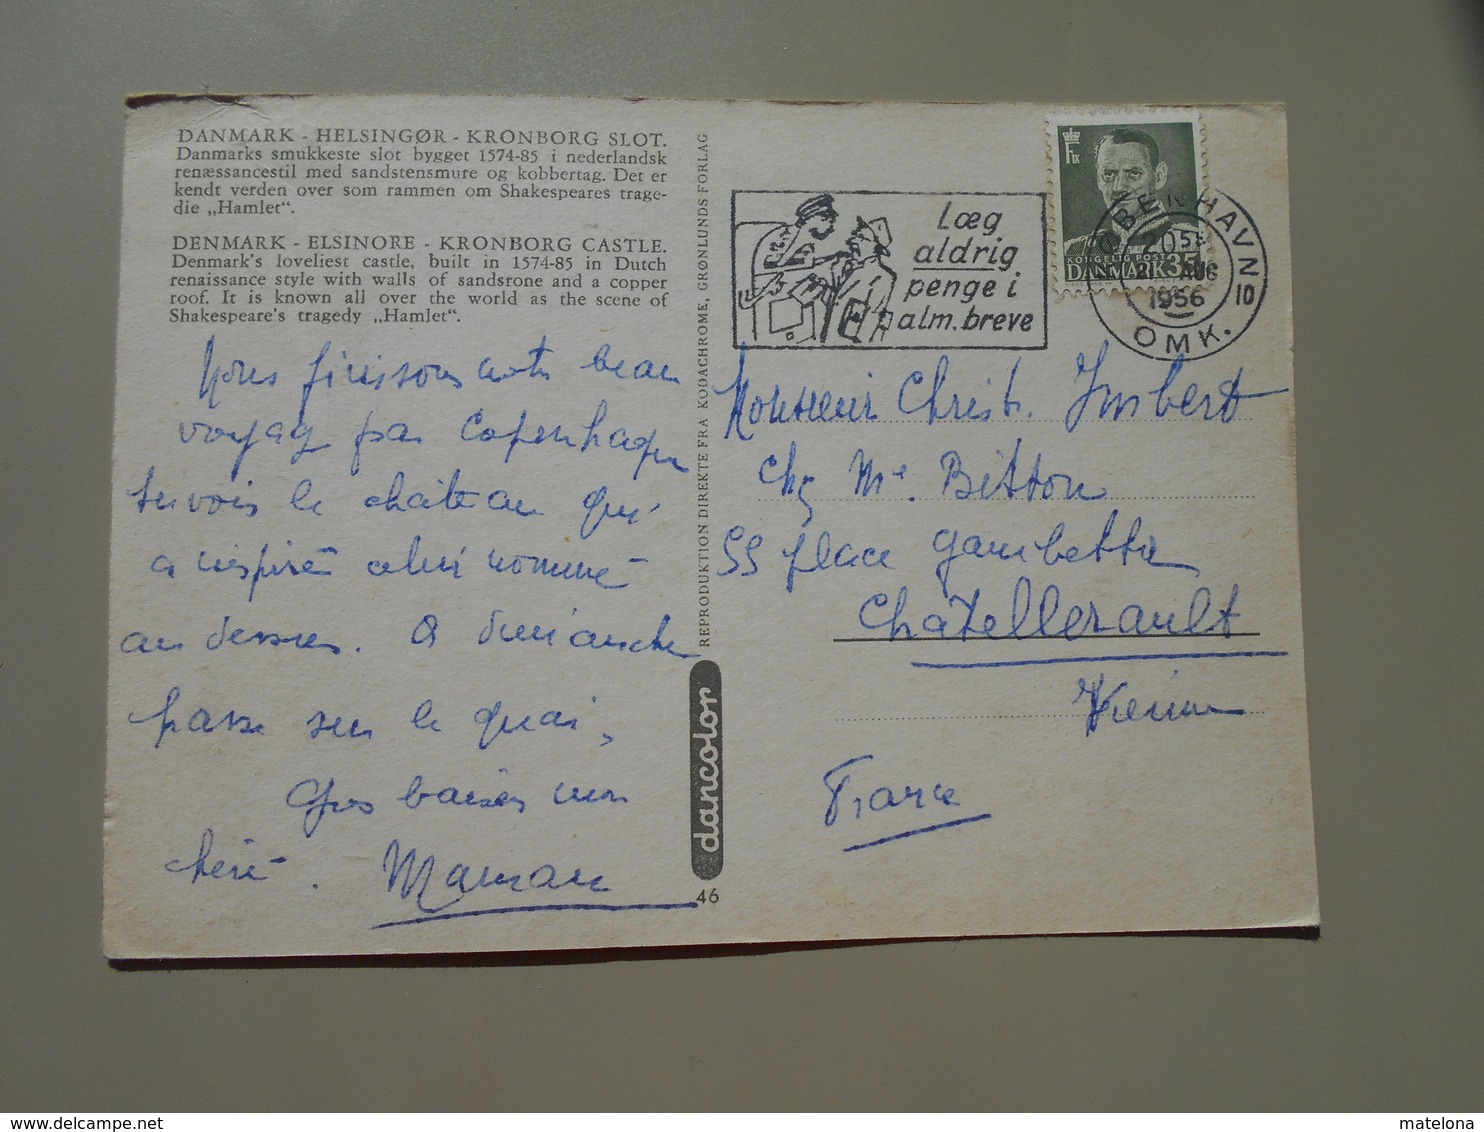 DANMARK - HELSINGØR - KRONBORG SLOT.
Danmarks smukkeste slot bygget 1574-85 i nederlandsk
renæssancestil med sandstensmure og kobbertag. Det er
kendt verden over som rammen om Shakespeares trage-
die „Hamlet“.
DENMARK - ELSINORE - KRONBORG CASTLE.
Denmark's loveliest castle, built in 1574-85 in Dutch
renaissance style with walls of sandsrone and a copper
roof. It is known all over the world as the scene of
Shakespeare's tragedy „Hamlet“.
Nous finissons notre beau
voyage par Copenhague
tu vois le château qui
a inspiré celui nommé
au dessus. A dimanche
passe sur le quai,
Gros baisers mon
chéri. Maman
REPRODUKTION DIREKTE FRA KODACHROME, GRØNLUNDS FORLAG
dancolor
46
Læg
aldrig
penge i
alm. breve
F IX
KONGELIG POST
DANMARK 35
KØBENHAVN
20
AUG
1956
10
OMK.
Monsieur Christ. Imbert
Chez Me. Bitton
55 place Gambetta
Chatellerault
Vienne
France
matelona